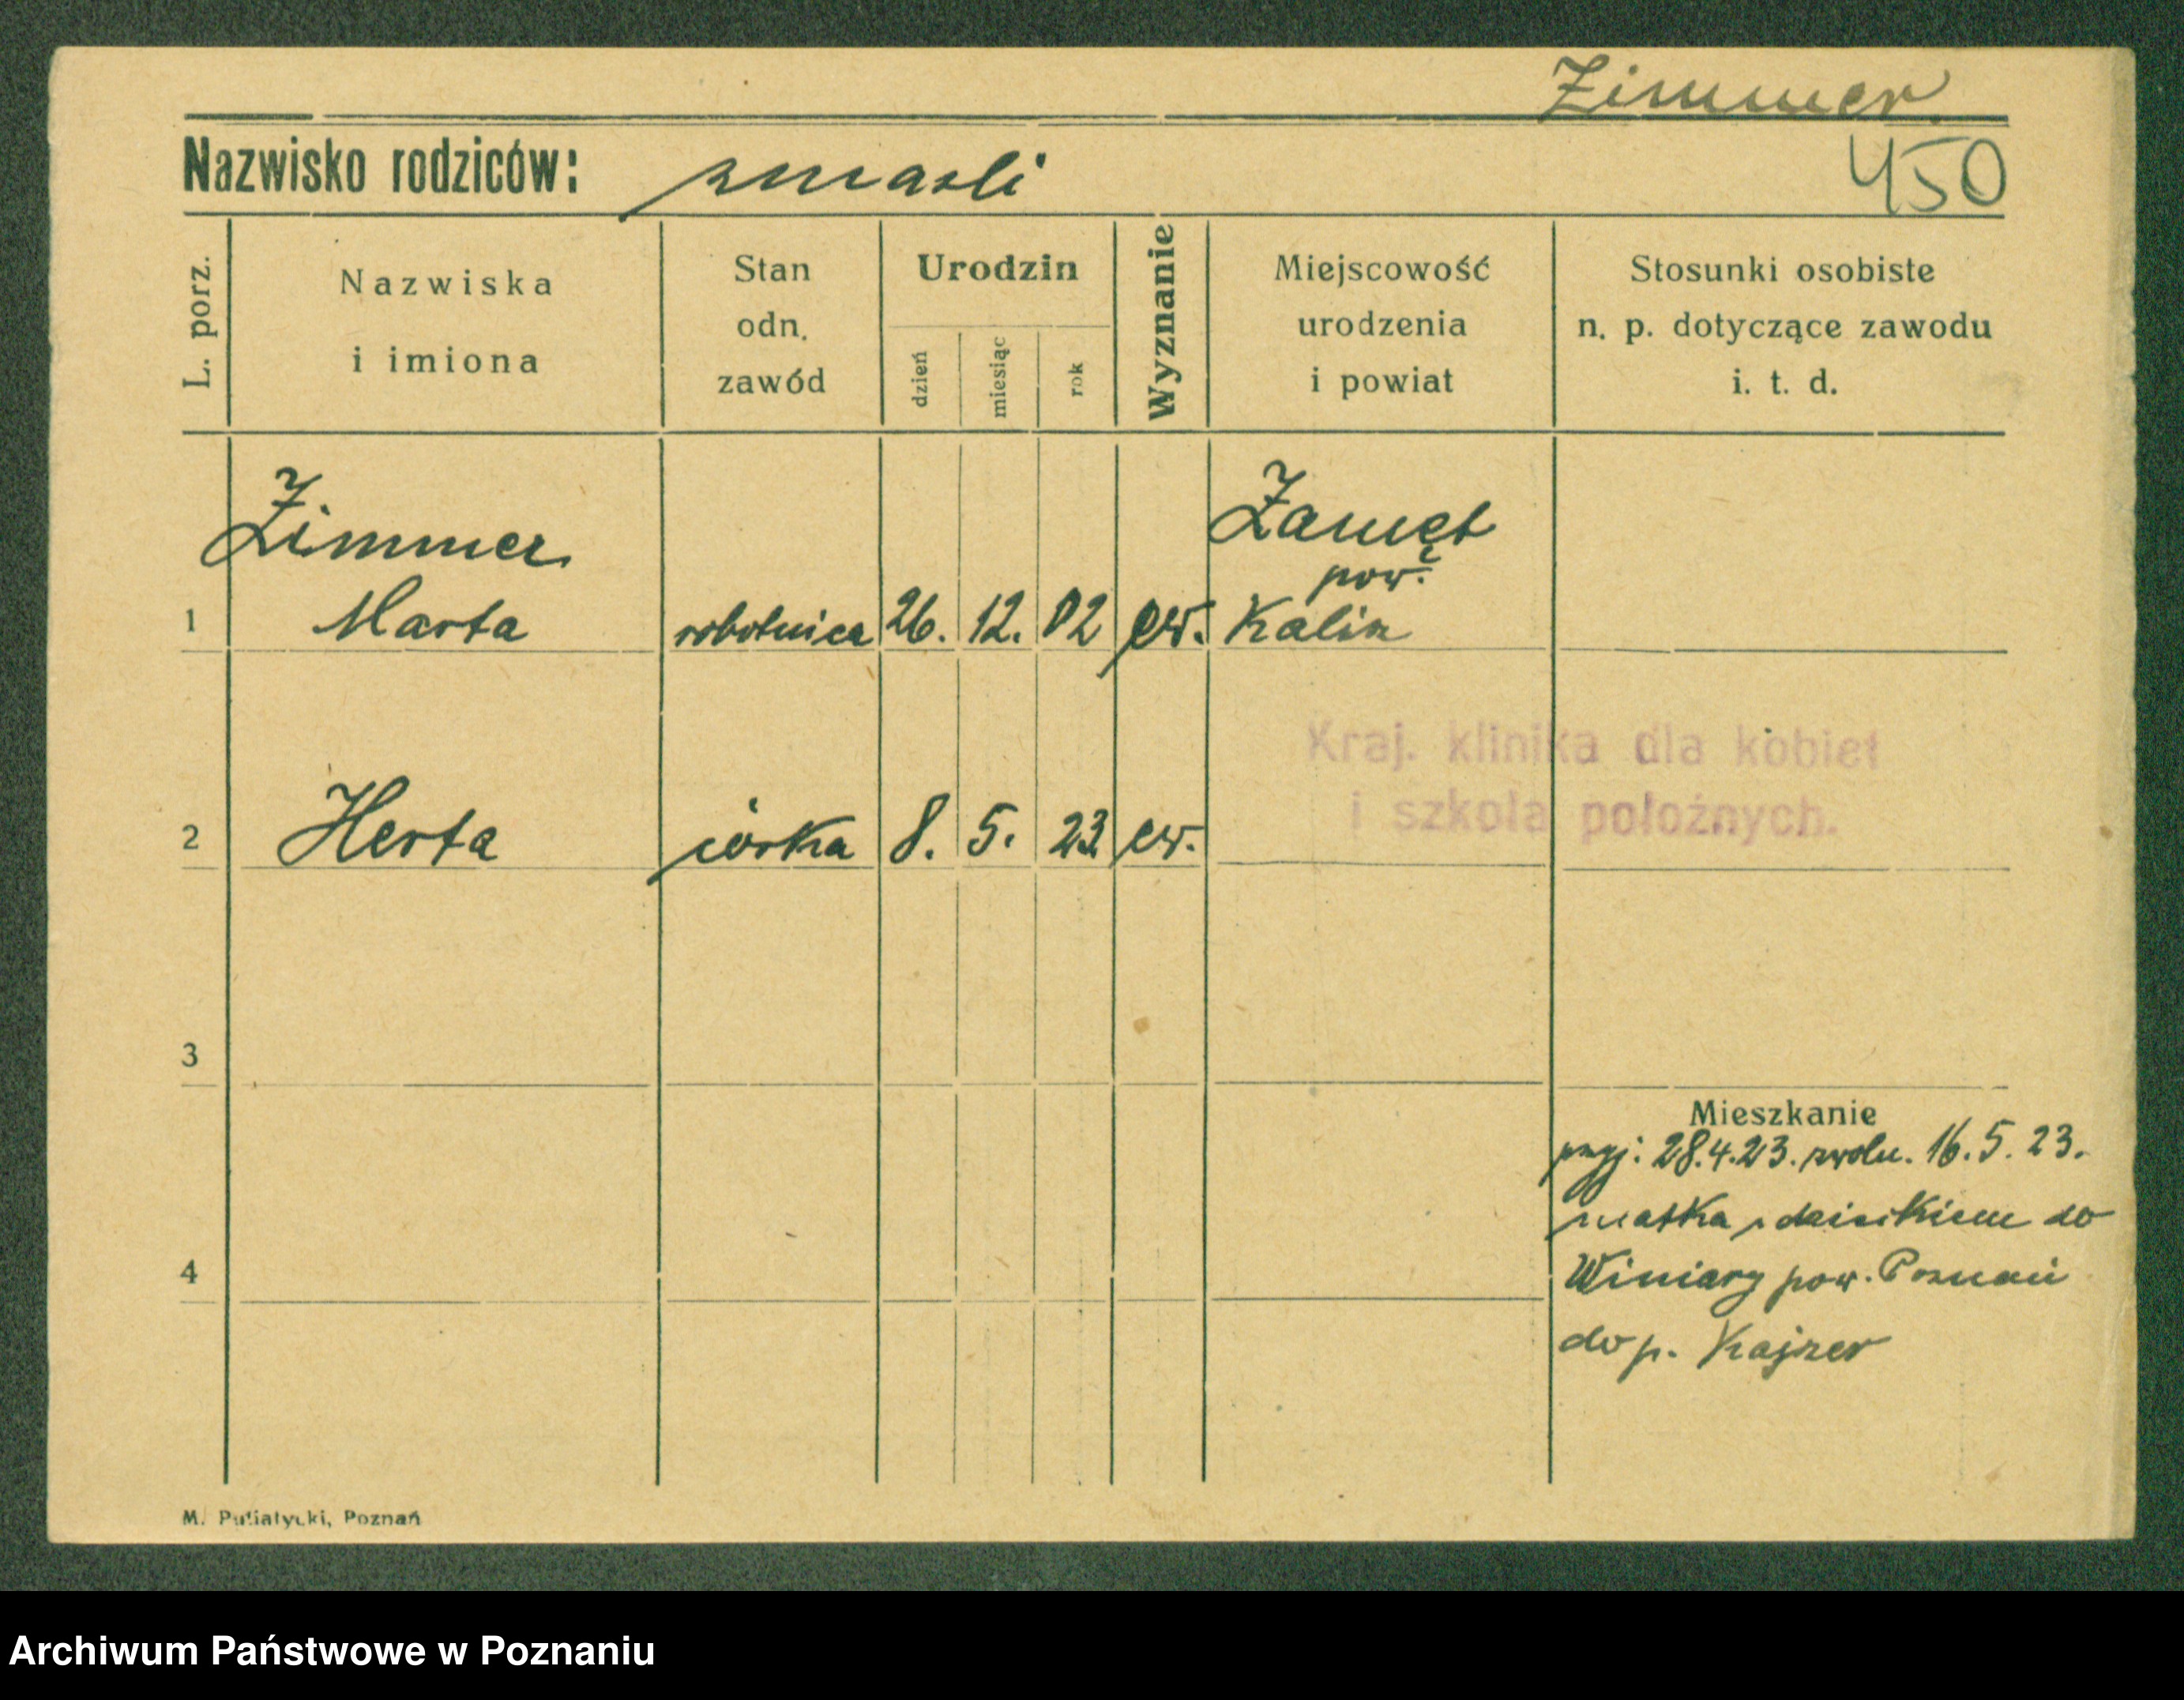 Zimmer.
Nazwisko rodziców: zmarli
450
L. porz.
Nazwiska
i imiona
Stan
odn.
zawód
Urodzin
dzień
miesiąc
rok
Wyznanie
Miejscowość
urodzenia
i powiat
Stosunki osobiste
n. p. dotyczące zawodu
i. t. d.
Zimmer
Marta
1 robotnica 26. 12. 02 ew.
Zamęt
pow.
Kalisz
Kraj. klinika dla kobiet
i szkoła położnych.
2 Herta córka 8. 5. 23 ew.
3
Mieszkanie
przyj: 28.4.23. zwoln. 16.5.23.
matka z dzieckiem do
Winiary pow. Poznań
do p. Kajzer
4
M. Putiatycki, Poznań
Archiwum Państwowe w Poznaniu